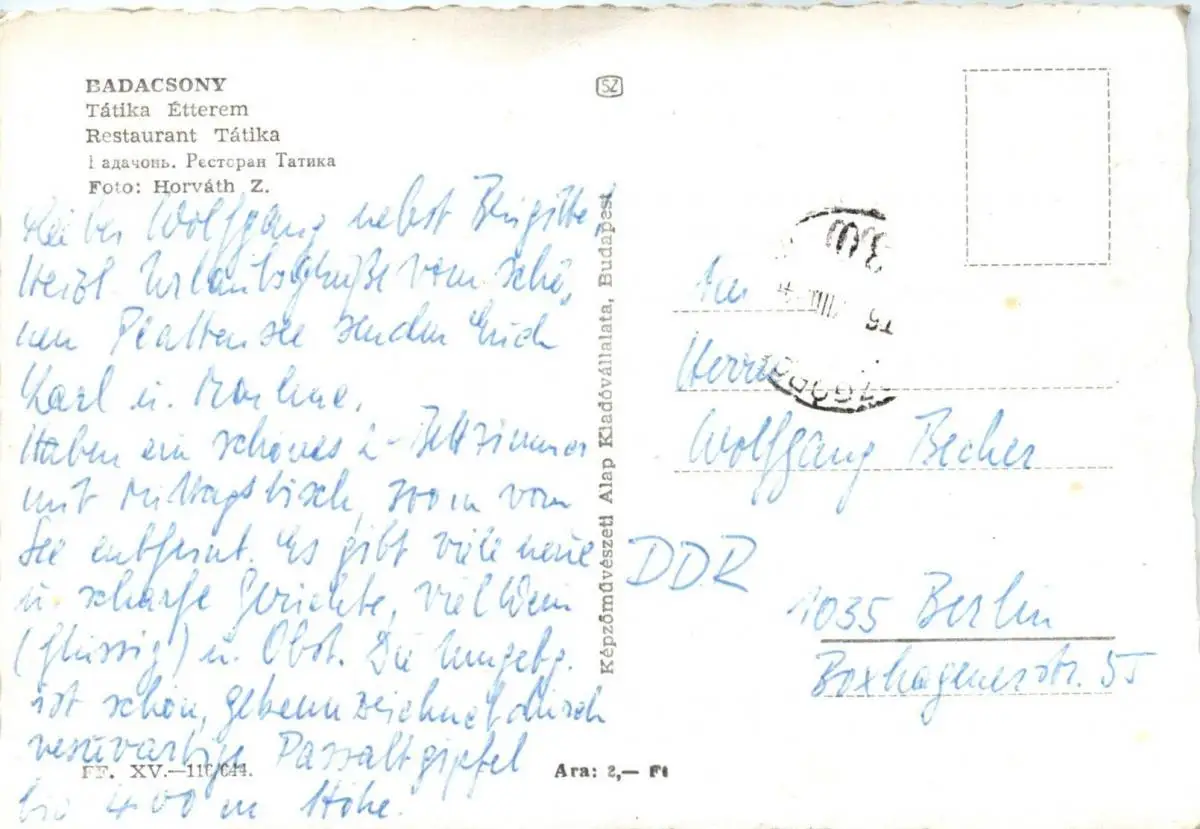 BADACSONY
Tátika Étterem
Restaurant Tátika
Бадачонь. Ресторан Татика
Foto: Horváth Z.
SZ
Lieber Wolfgang nebst Brigitte,
Herzl. Urlaubsgrüße vom schö,
nen Plattensee senden Euch
Karl u. Marlene.
Haben ein schönes 2-Bettzimmer
mit Mittagstisch, 300 m vom
See entfernt. Es gibt viele neue
u. scharfe Gerichte, viel Wein
(flüssig) u. Obst. Die Umgebg.
ist schön, gekennzeichnet durch
vesuvartige Passaltgipfel
bis 400 m Höhe.
FF. XV.—110/644.
Ara: 2,— Ft
Képzőművészeti Alap Kiadóvállalata, Budapest
Herrn
Wolfgang Becher
DDR
1035 Berlin
Boxhagenerstr. 55